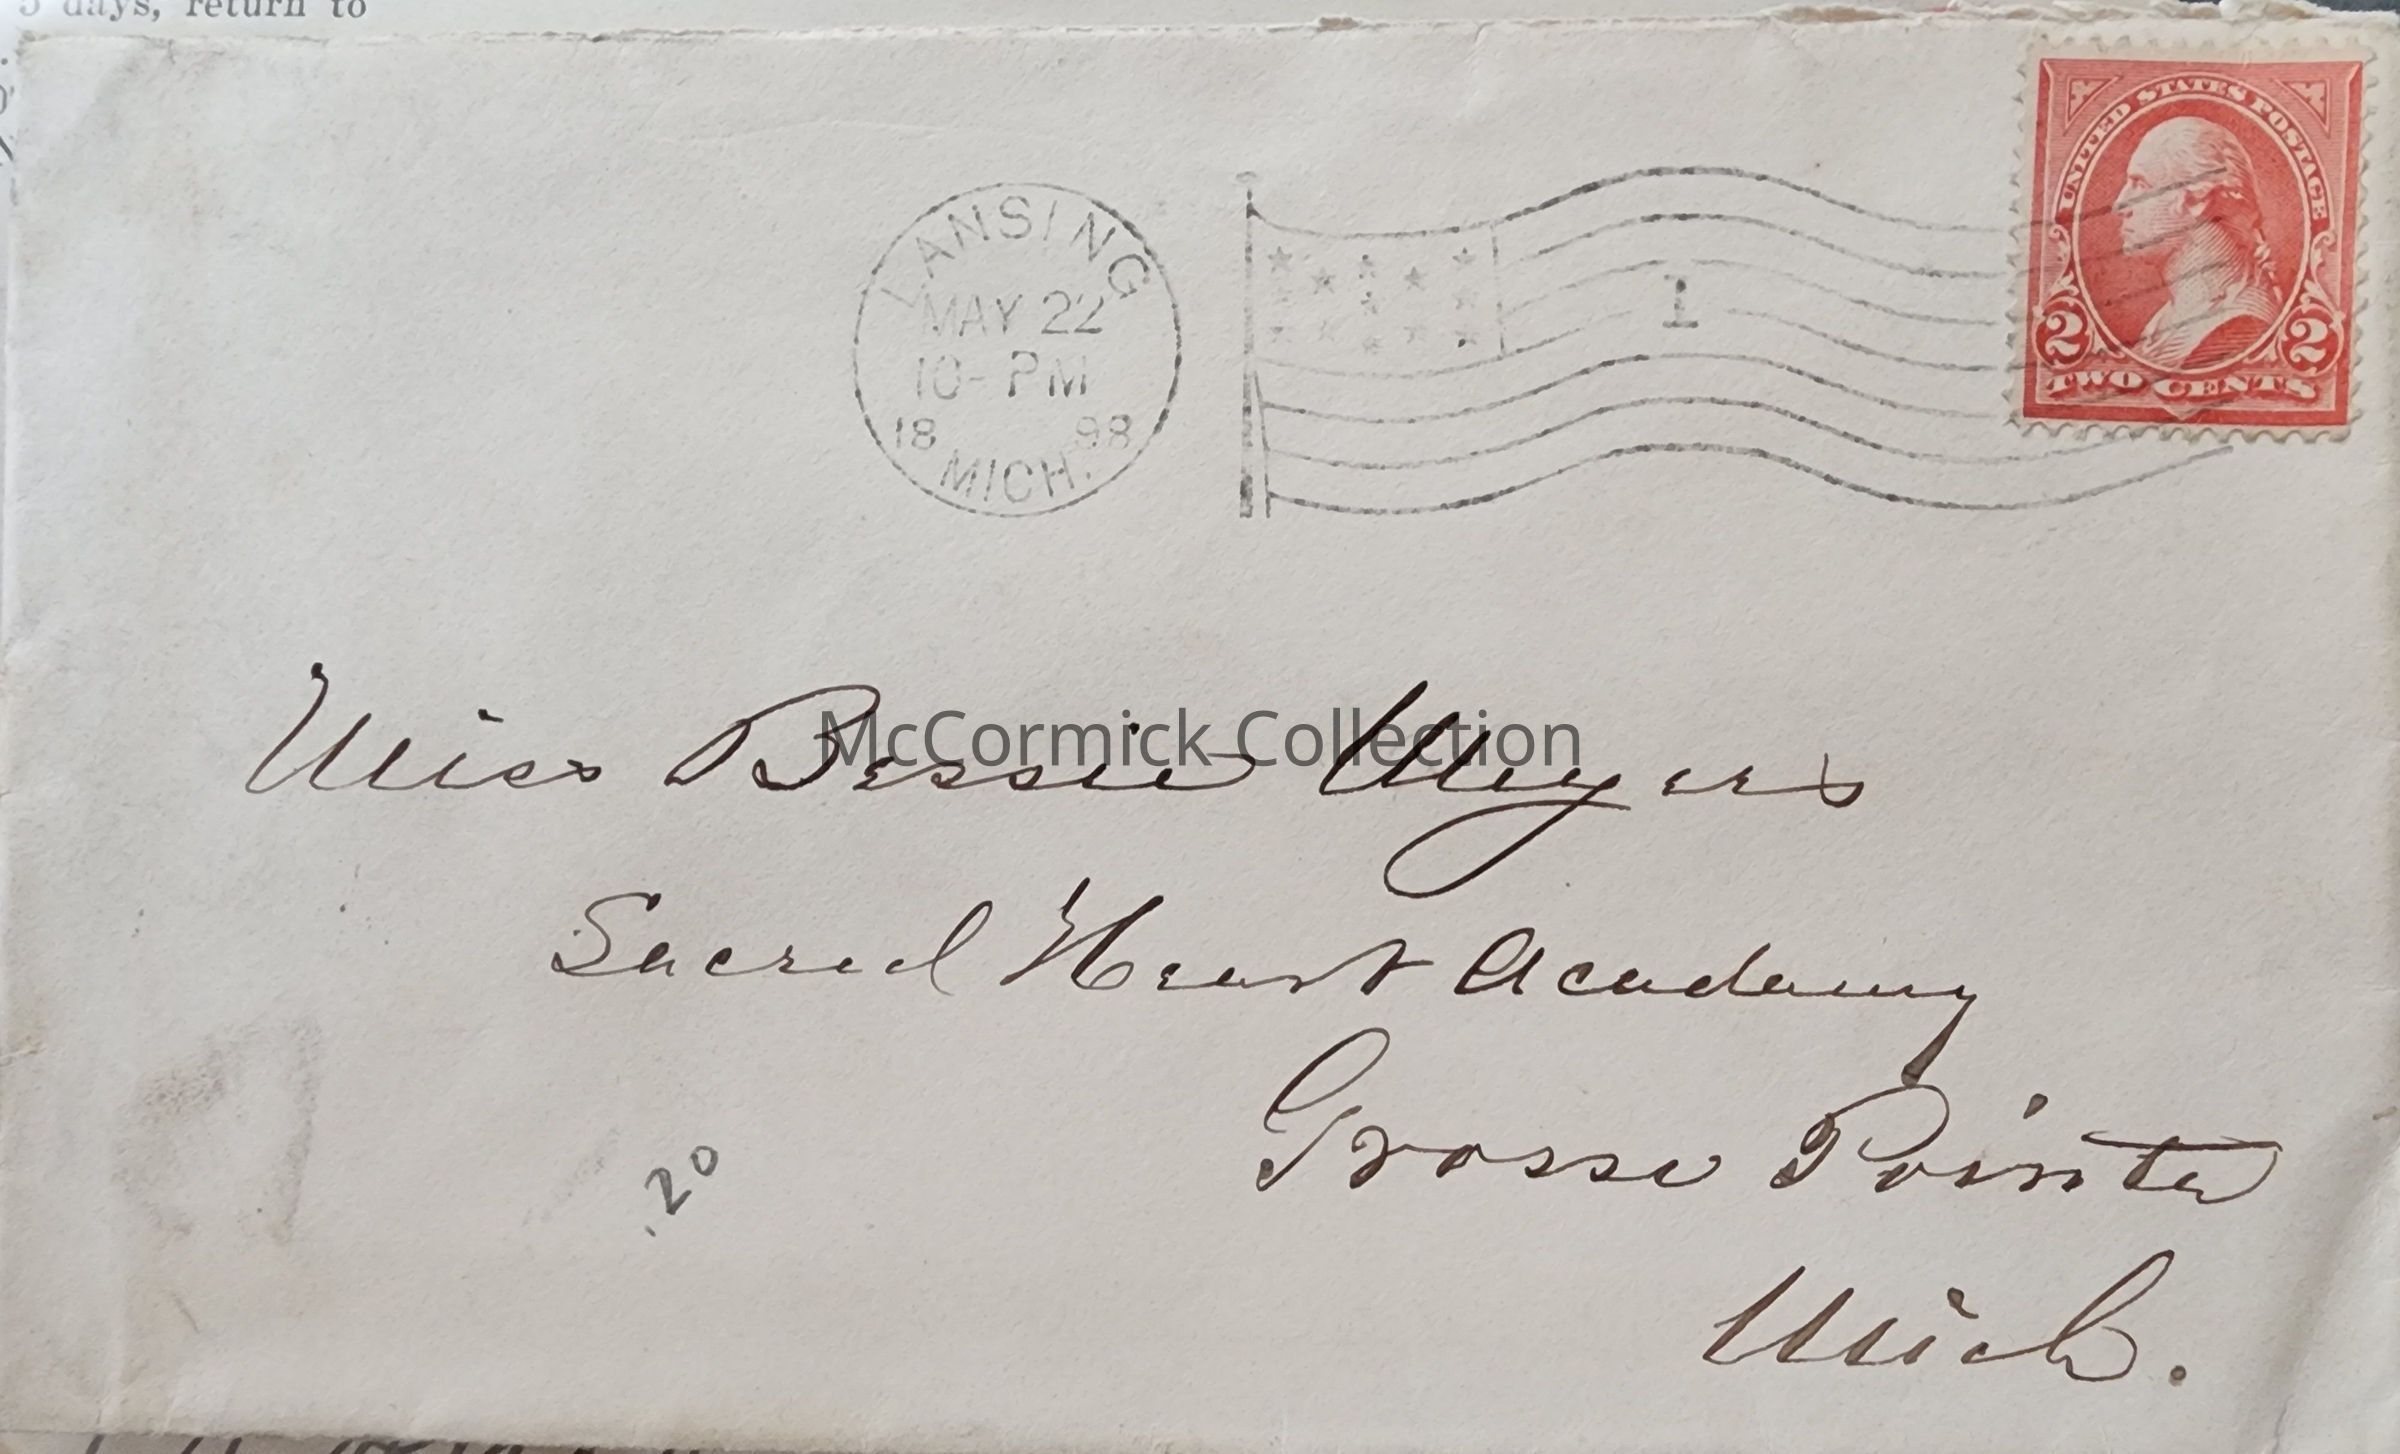 5 days, return to
UNITED STATES POSTAGE
2 2
TWO CENTS
LANSING
MAY 22
10- PM
18 98
MICH.
1
Miss Bessie Meyers
McCormick Collection
Sacred Heart Academy
Grosse Pointe
Mich.
.20